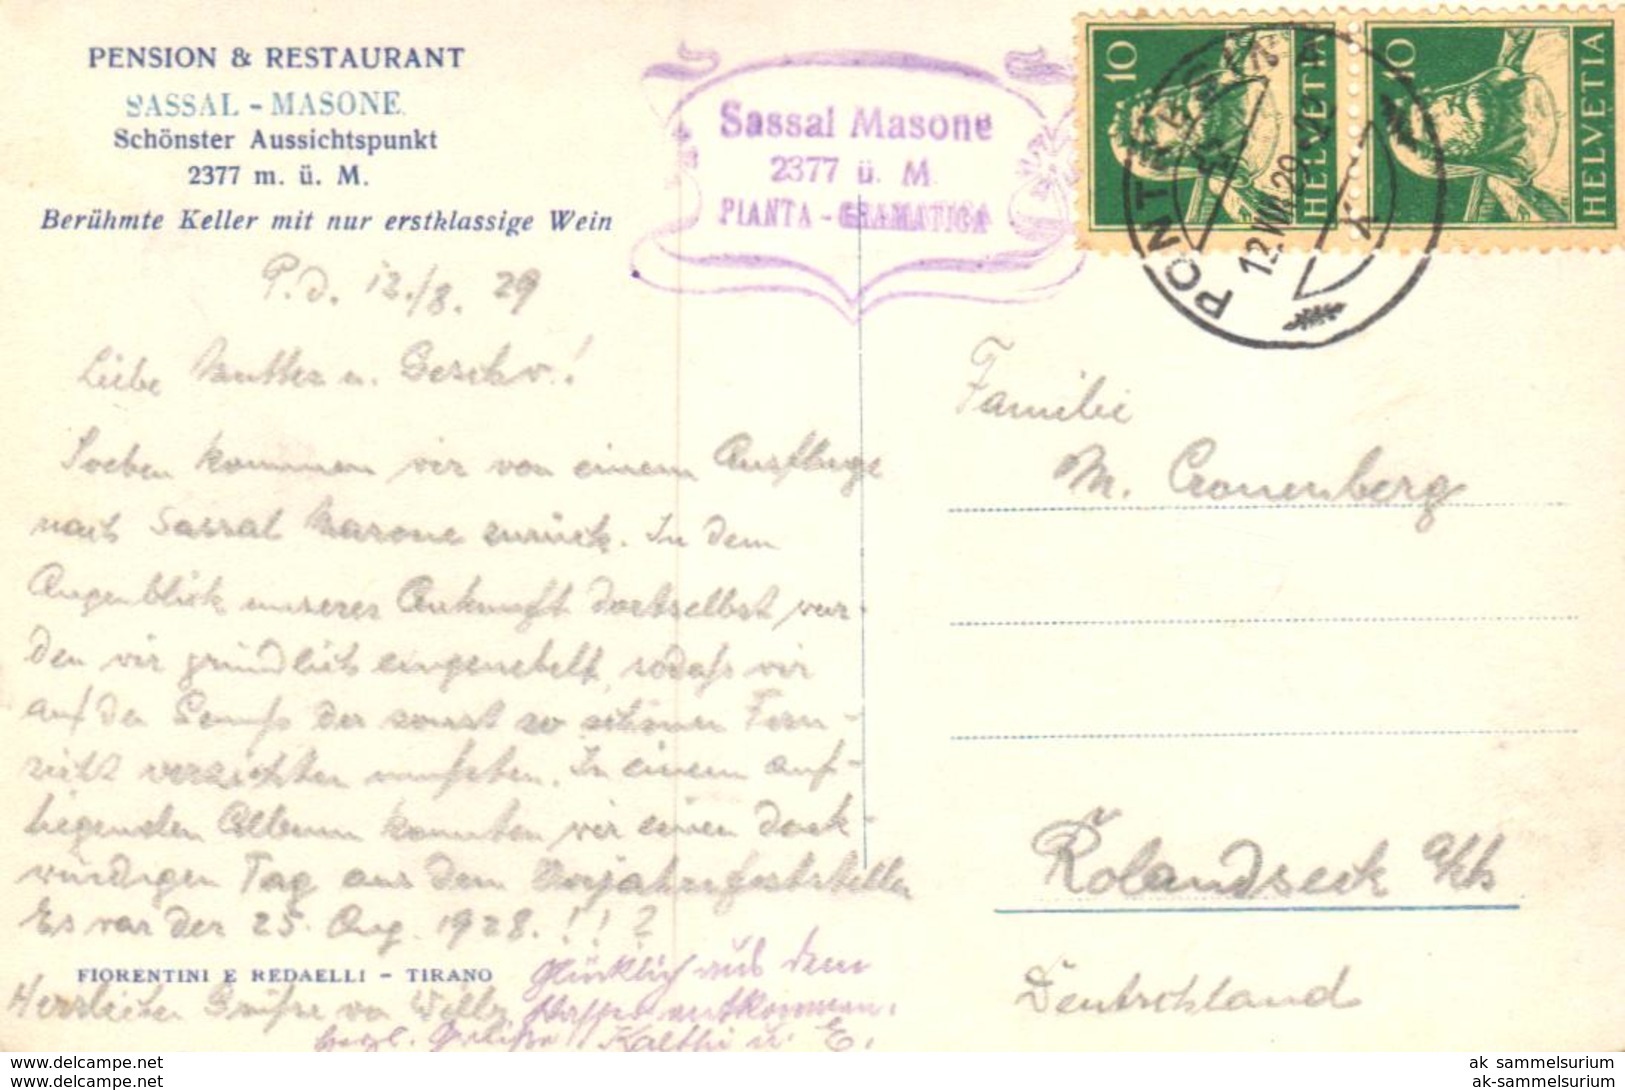 PENSION & RESTAURANT
SASSAL - MASONE.
Schönster Aussichtspunkt
2377 m. ü. M.
Berühmte Keller mit nur erstklassige Wein
Sassal Masone
2377 ü. M.
PIANTA - GRAMATICA
10
HELVETIA
10
HELVETIA
PONTRESINA
12. VIII. 29
K
P.d. 12./8. 29
Liebe Mutter u. Geschw.!
Soeben kommen wir von einem Ausfluge
nach Sassal Masone zurück. In dem
Augenblick unserer Ankunft dortselbst wur-
den wir gründlich eingenebelt, sodaß wir
auf den Genuß der sonst so schönen Fern-
sicht verzichten mußten. In einem auf-
liegenden Album konnten wir einen denk-
würdigen Tag aus dem Vorjahre feststellen
Es war der 25. Aug. 1928. !!!
FIORENTINI E REDAELLI - TIRANO
Herzlichen Grüße von Willy
Glücklich aus dem
entkommen.
herzl. Grüße Käthi u. E.
Familie
M. Cronenberg
Rolandseck a/Rh
Deutschland
www.delcampe.net
www.delcampe.net
ak_sammelsurium
ak-sammelsurium